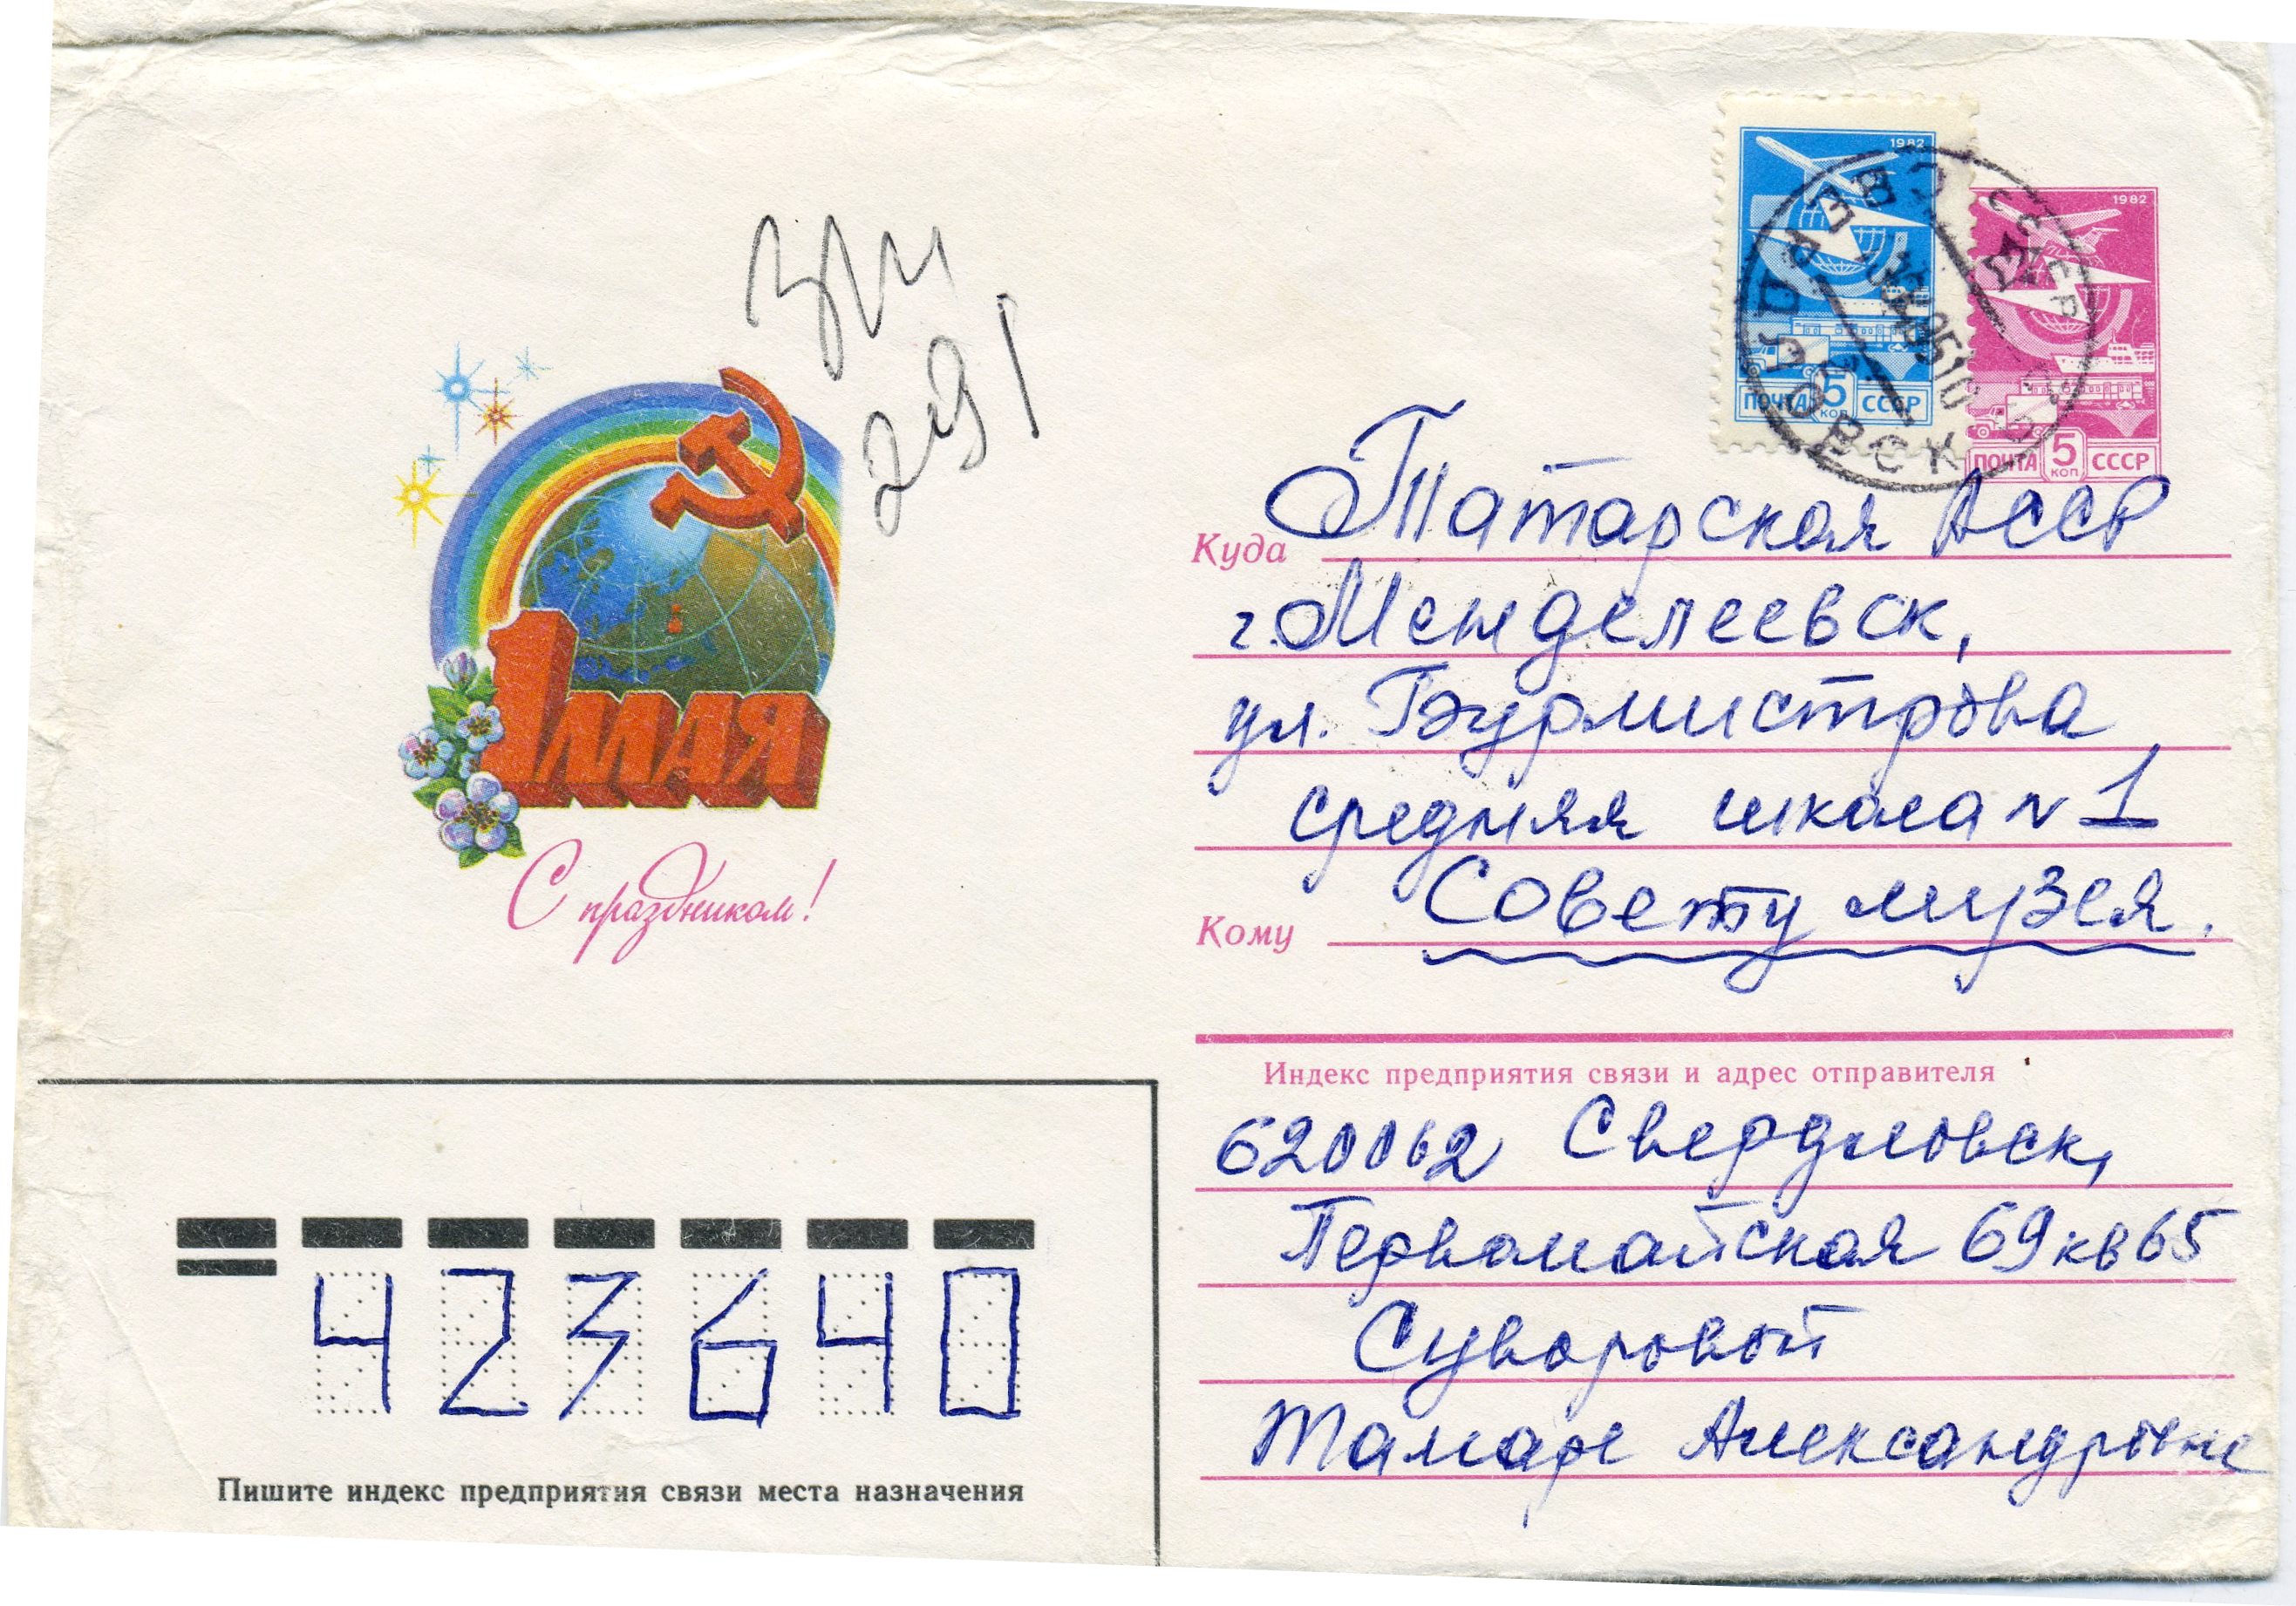 1982
ПОЧТА 5 КОП СССР
1982
ПОЧТА 5 КОП СССР
СВЕРДЛОВСК
291
1 МАЯ
С праздником!
Куда Татарская АССР
г. Менделеевск,
ул. Бурмистрова
средняя школа N 1
Кому Совету музея.
Индекс предприятия связи и адрес отправителя
620062 Свердловск,
Первомайская 69 кв 65
Суворовой
Тамаре Александровне
423640
Пишите индекс предприятия связи места назначения